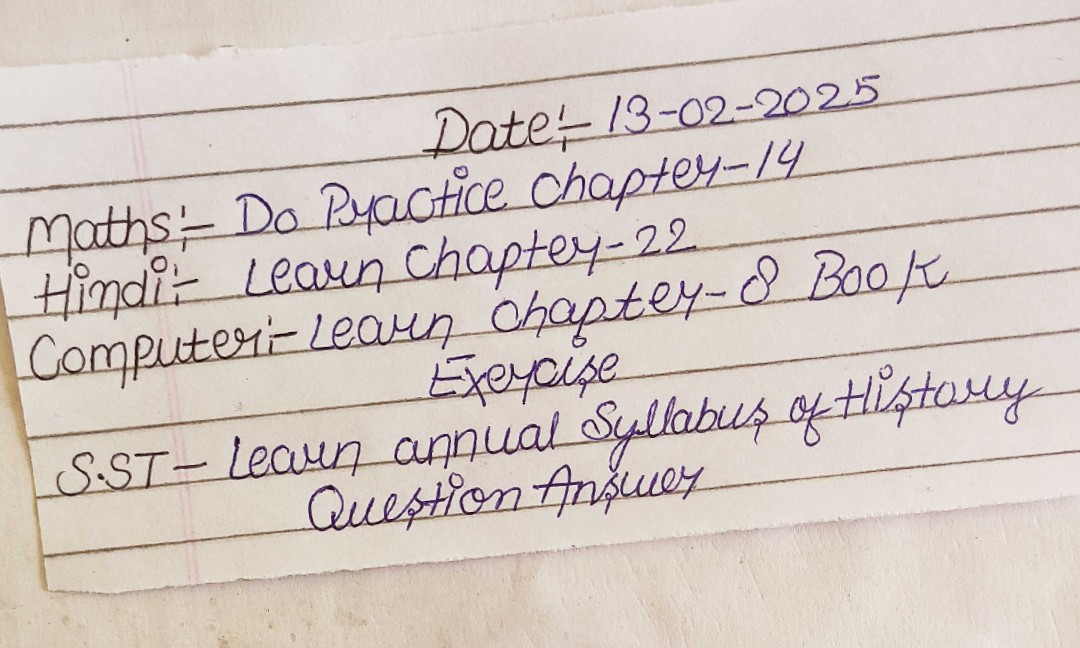 Date:- 13-02-2025
Maths:- Do Practice Chapter-14
Hindi:- Learn Chapter-22
Computer:- Learn Chapter-8 Book
Exercise
S.ST- Learn annual Syllabus of History
Question Answer